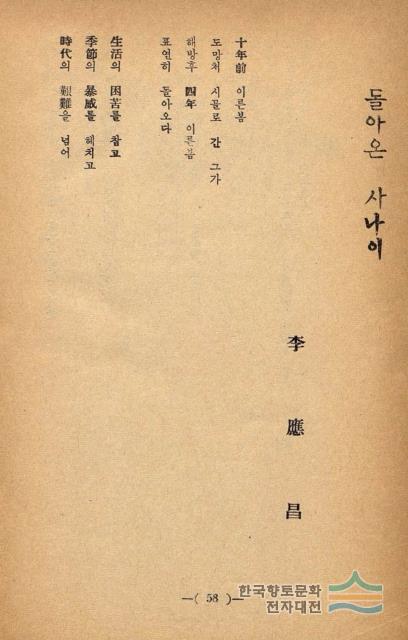 돌아온 사나이
李應昌
十年前 이른봄
도망처 시굴로 간 그가
해방후 四年 이른봄
표연히 돌아오다
生活의 困苦를 참고
季節의 暴威를 헤치고
時代의 艱難을 넘어
—( 58 )—
한국향토문화
전자대전